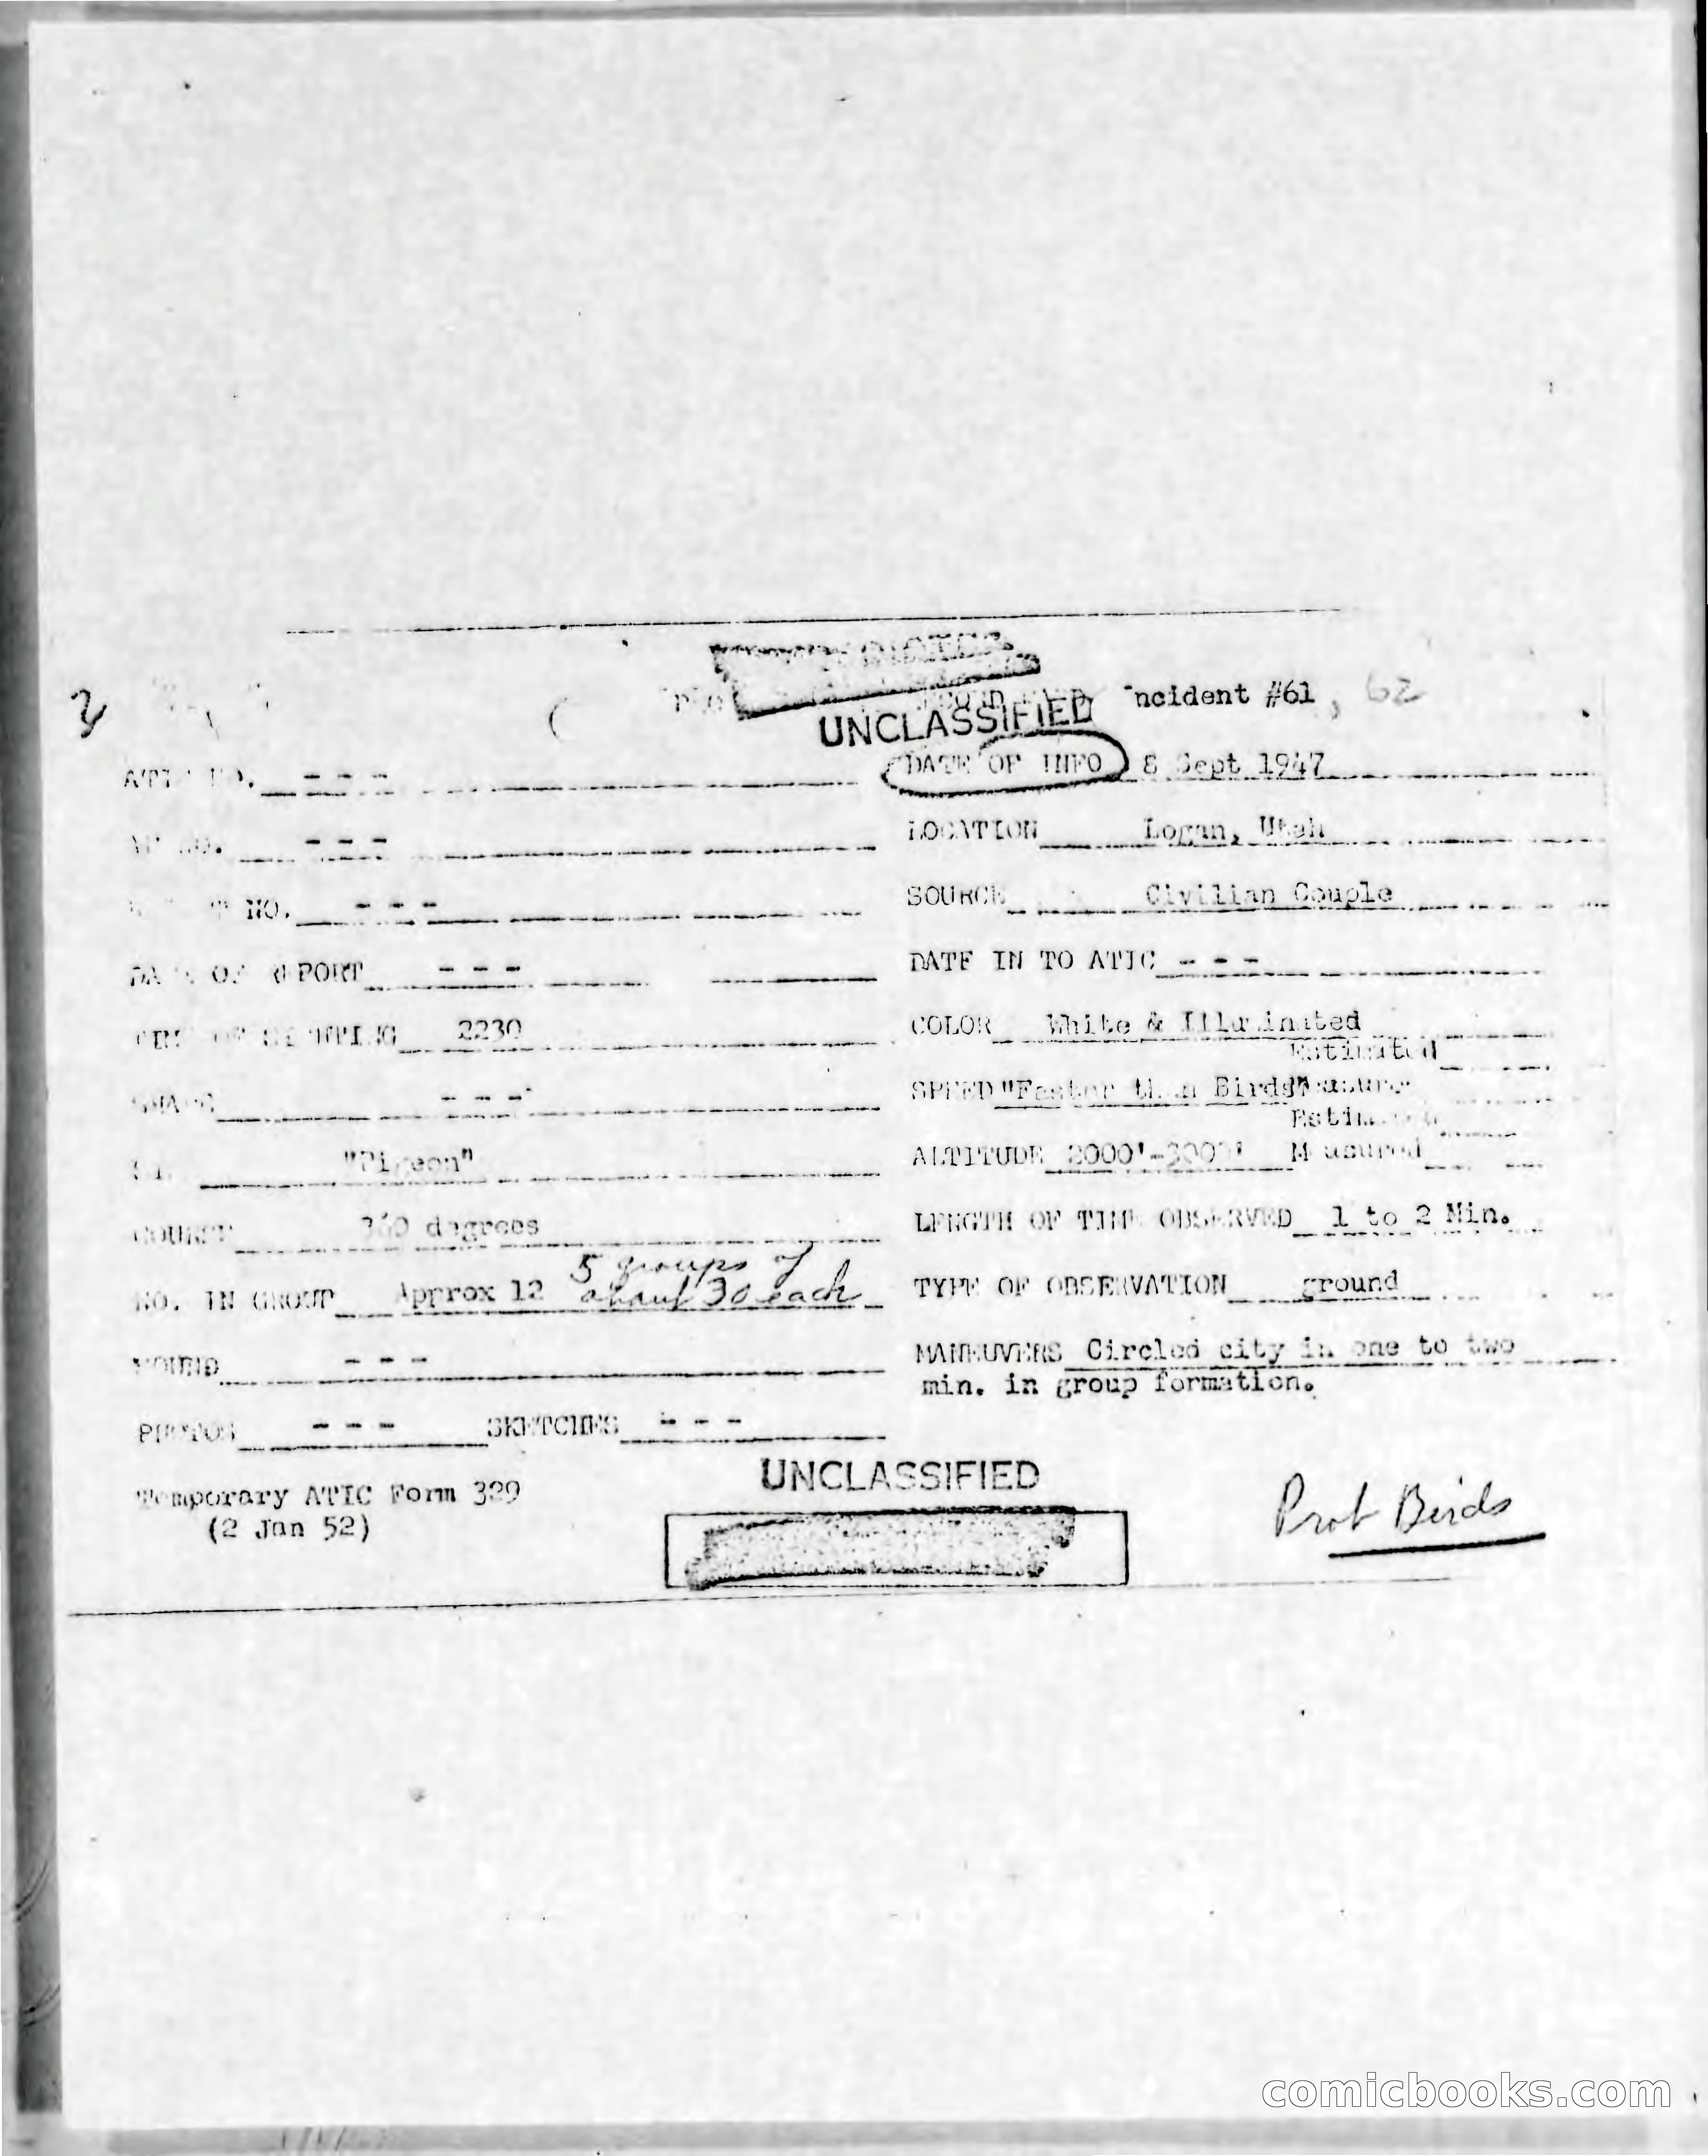 Incident #61, 62
UNCLASSIFIED
NO. - - - DATE OF INFO 8 Sept 1947
NO. - - - LOCATION Logan, Utah
NO. - - - SOURCE Civilian Couple
DATE OF REPORT - - - DATE IN TO ATIC - - -
TIME OF SIGHTING 2230 COLOR White & Illuminated
Estimated
SHAPE - - - SPEED "Faster than Birds"
Estimated
"Pigeon" ALTITUDE 2000'-3000' Measured
COURSE 360 degrees LENGTH OF TIME OBSERVED 1 to 2 Min.
5 groups of
NO. IN GROUP Approx 12 about 30 each TYPE OF OBSERVATION ground
SOUND - - - MANEUVERS Circled city in one to two
min. in group formation.
PHOTOS - - - SKETCHES - - -
UNCLASSIFIED
Temporary ATIC Form 329
(2 Jan 52)
Prob Birds
comicbooks.com